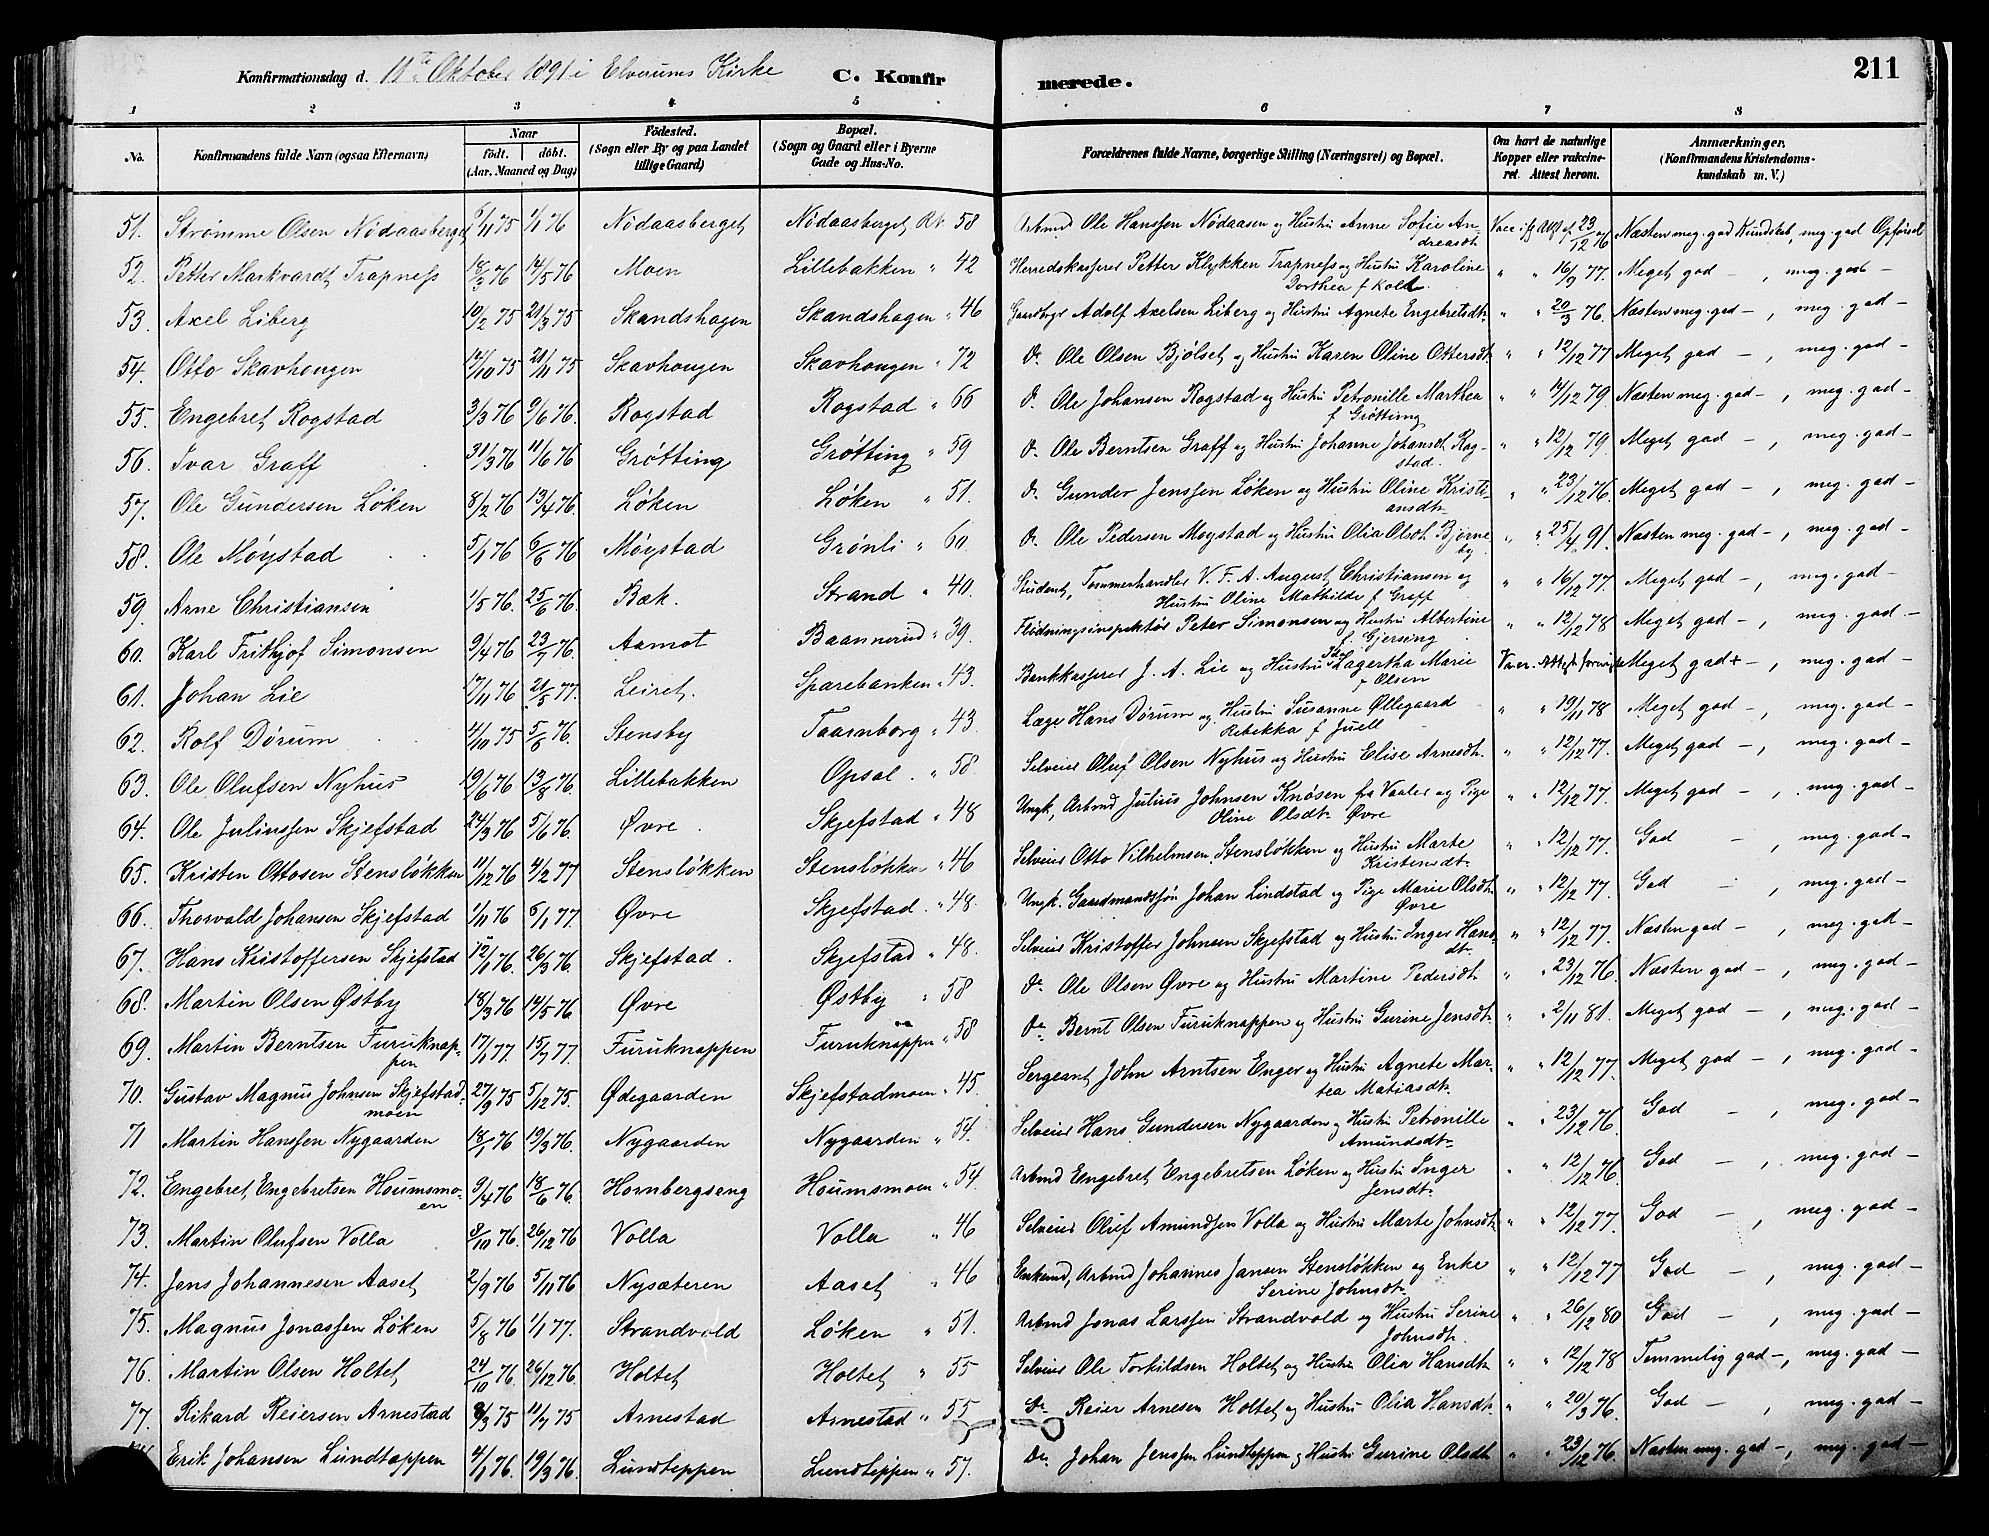 211
Konfirmationsdag d. 11te Oktober 1891 i Elverums Kirke C. Konfirmerede.
1 2 3 4 5 6 7 8
No. Konfirmandens fulde Navn (ogsaa Efternavn) Naar født. døbt. (Aar, Maaned og Dag) Fødested. (Sogn eller By og paa Landet tillige Gaard) Bopæl. (Sogn og Gaard eller i Byerne Gade og Hus-No. Forældrenes fulde Navne, borgerlige Stilling (Næringsvei) og Bopæl. Om havt de naturlige Kopper eller vakcineret. Attest herom. Anmærkninger. (Konfirmandens Kristendomskundskab m. V.)
51. Strømme Olsen Nødaasberget 5/11 75 1/1 76 Nødaasberget Nødaasberget Rk. 58 Arbmd Ole Hanssen Nødaasen og Hustru Anne Sofie Andreasdt. 23/12 76 Næsten meg. god Kundskab, meg. god Opførsel
52. Petter Markvardt Trapness 18/3 76 14/5 76 Moen Lillebakken " 42 Herredskasserer Petter Klykken Trapness og Hustru Karoline Dorthea f. Kolt. " " 16/9 77. Meget god –, meg. god –
53. Axel Liberg 10/2 75 21/3 75 Skandshagen Skandshagen " 46 Gaardbgr Adolf Axelsen Liberg og Hustru Agnete Engebretsdt. " " 20/3 76. Næsten meg. god –, meg. god –
54. Otto Skavhougen 14/10 75 21/11 75 Skavhougen Skavhougen " 72 Do Ole Olsen Bjølset og Hustru Karen Oline Ottersdt. " " 12/12 77 Meget god –, meg. god –
55. Engebret Rogstad 3/3 76 9/6 76. Rogstad Rogstad " 66 Do Ole Johansen Rogstad og Hustru Petronille Marthea f Grøtting " " 14/12 79. Næsten meg. god –, meg. god –
56. Ivar Graff 31/3 76 11/6 76 Grøtting Grøtting " 59 Do Ole Berntsen Graff og Hustru Johanne Johansdt. Rogstad. " " 12/12 79. Meget god –, meg. god –
57. Ole Gundersen Løken 8/2 76 13/4 76. Løken Løken " 51. Do Gunder Jenssen Løken og Hustru Oline Kristiansdt. " " 23/12 76. Meget god –, meg. god –
58. Ole Møystad 5/1 76 6/6 76 Møystad Grønli " 60. Do Ole Pedersen Moystad og Hustru Olia Olsdt. Bjørneby " " 25/4 91. Næsten meg. god –, meg. god –
59. Arne Christiansen 1/5 76. 25/6 76. Bæk. Strand " 40. Student, Tømmerhandler V. F. A. August Christiansen og Hustru Oline Mathilde f. Graff " " 16/12 77. Meget god –, meg. god –
60. Karl Frithjof Simonsen 9/4 76 23/7 76. Aamot Baannerud " 39. Flødningsinspektør Peter Simonsen og Hustru Albertine f. Gjersing " " 12/12 78 Meget god –, meg. god –
61. Johan Lie 17/11 76 21/5 77. Leiret. Sparebanken " 43. Bankkasserer J. A. Lie og Hustru Lagertha Marie f Olsen Meget god + –, meg. god –
62. Rolf Dørum 4/10 75 5/6 76. Stensby Taarnborg " 43 Læge Hans Dørum og Hustru Susanne Øllegaard Rebekka f Juell " " 19/11 78 Meget god –, meg. god –
63. Ole Olufsen Nyhus 19/6 76 13/8 76. Lillebakken Opsal. " 58. Selveier Oluf Olsen Nyhus og Hustru Elise Arnesdt. " " 12/12 77. Meget god –, meg. god –
64. Ole Juliussen Skjefstad 24/3 76 5/6 76. Øvre Skjefstad " 48 Ungk., Arbmd Julius Johnsen Knøsen fra Vaaler og Pige Oline Olsdt. Øvre " " 12/12 77. Meget god –, meg. god –
65. Kristen Ottosen Stensløkken 11/12 76 4/2 77 Stensløkken Stensløkken " 46 Selveier Otto Vilhelmsen Stensløkken og Hustru Marte Kristensdt. " " 12/12 77. God –, meg. god –
66. Thorvald Johansen Skjefstad 1/11 76 6/1 77. Øvre Skjefstad. " 48. Ungk. Gaardmandssøn Johan Lindstad og Pige Marie Olsdt. Øvre " " 12/12 77. God –, meg. god –
67. Hans Kristoffersen Skjefstad 12/1 76. 26/3 76. Skjefstad. Skjefstad " 48. Selveier Kristoffer Johnsen Skjefstad og Hustru Inger Hansdt. " " 12/12 77. Næsten god –, meg. god –
68. Martin Olsen Østby 18/3 76 14/5 76. Øvre Østby " 58 Do Ole Olsen Øvre og Hustru Martine Pedersdt. " " 23/12 76. Næsten god –, meg. god –
69. Martin Berntsen Furuknappen 17/1 77. 15/7 77. Furuknappen Furuknappen " 58 Do Bernt Olsen Furuknappen og Hustru Gurine Jensdt. " " 2/11 81. Meget god –, meg. god –
70. Gustav Magnus Johnsen Skjefstadmoen 27/9 75 5/12 75. Ødegaarden Skjefstadmoen " 45 Sergeant John Arntsen Enger og Hustru Agnete Martea Matiasdt. " " 12/12 77. Meget god –, meg. god –
71 Martin Hanssen Nygaarden 18/1 76 19/3 76. Nygaarden Nygaarden " 54. Selveier Hans Gundersen Nygaarden og Hustru Petronille Amundsdt. " " 23/12 76. God –, meg. god –
72. Engebret Engebretsen Houmsmoen 9/4 76 18/6 76. Hornbergseng Houmsmoen " 54 Arbmd Engebret Engebretsen Løken og Hustru Inger Jensdt. " " 12/12 76. God –, meg. god –
73. Martin Olufsen Volla 8/10 76. 26/12 76 Volla Volla " 46 Selveier Oluf Amundsen Volla og Hustru Marte Johnsdt. " " 12/12 77. God –, meg. god –
74. Jens Johannesen Aaset 2/9 76 5/11 76 Nysæteren Aaset " 46 Enkemd, Arbmd Johannes Jansen Stensløkken og Enke Serine Johnsdt. " " 12/12 77 God –, meg. god –
75. Magnus Jonassen Løken 5/8 76 1/1 77. Strandvold Løken " 51. Arbmd Jonas Larssen Strandvold og Hustru Serine Johnsdt. " " 26/12 80 God –, meg. god –
76. Martin Olsen Holtet 24/10 76. 26/12 76. Holtet Holtet " 55 Selveier Ole Torkildsen Holtet og Hustru Olia Hansdt. " " 12/12 78 Temmelig god –, meg. god –
77. Rikard Reiersen Arnestad 8/3 75 11/7 75 Arnestad Arnestad " 55 Do Reier Arnesen Holtet og Hustru Olia Hansdt. " " 20/3 76. God –, meg. god –
Erik Johansen Lundtæppen 4/1 76. 19/3 76. Lundteppen Lundteppen " 57. Do Johan Jenssen Lundteppen og Hustru Gurine Olsdt. " " 23/12 76. Næsten meg. god –, meg. god –